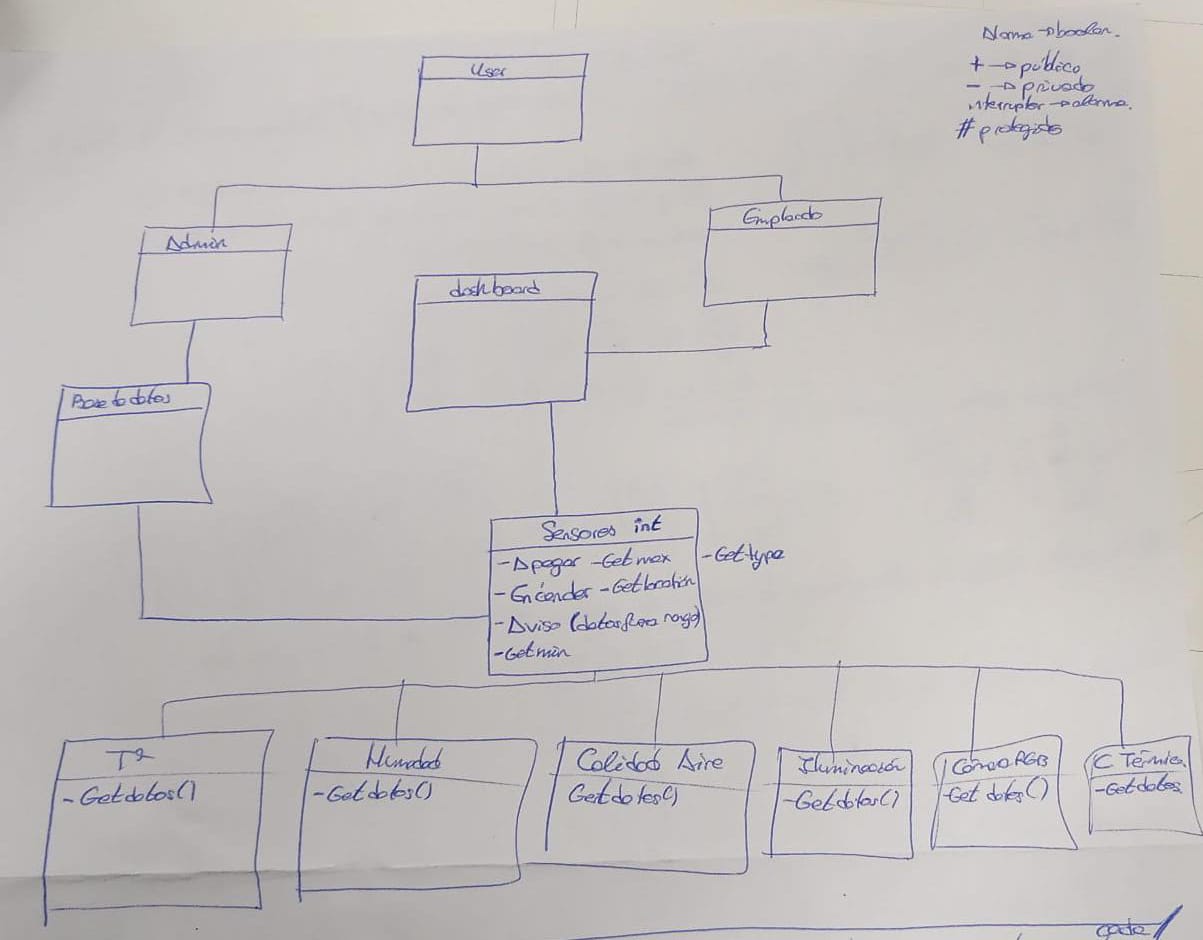 User
Alarma → boolean.
+ → público
- → privado
interruptor → alarma.
# protegido
Admin
Empleado
dashboard
Base de datos
Sensores int
- Apagar - Get max - Get type
- Encender - Get location
- Aviso (datos fuera rango)
- Get min
Tª
- Get datos()
Humedad
- Get datos()
Calidad Aire
Get datos()
Iluminación
- Get datos()
Cámara RGB
- Get datos()
C Térmica
- Get datos